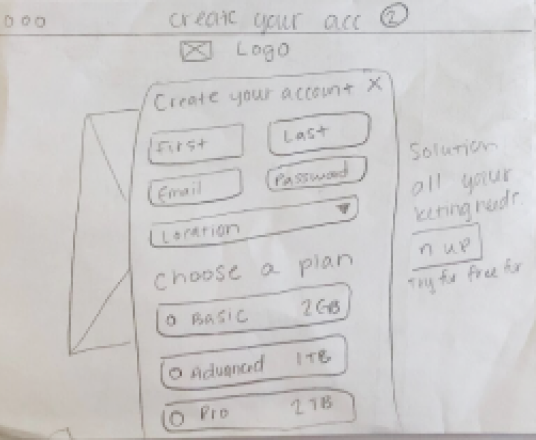 create your acc 2
Logo
Create your account X
First Last
Email Password
Location
Choose a plan
Basic 2GB
Advanced 1TB
Pro 2TB
Solution
all your
keting needs.
n up
Try for free for